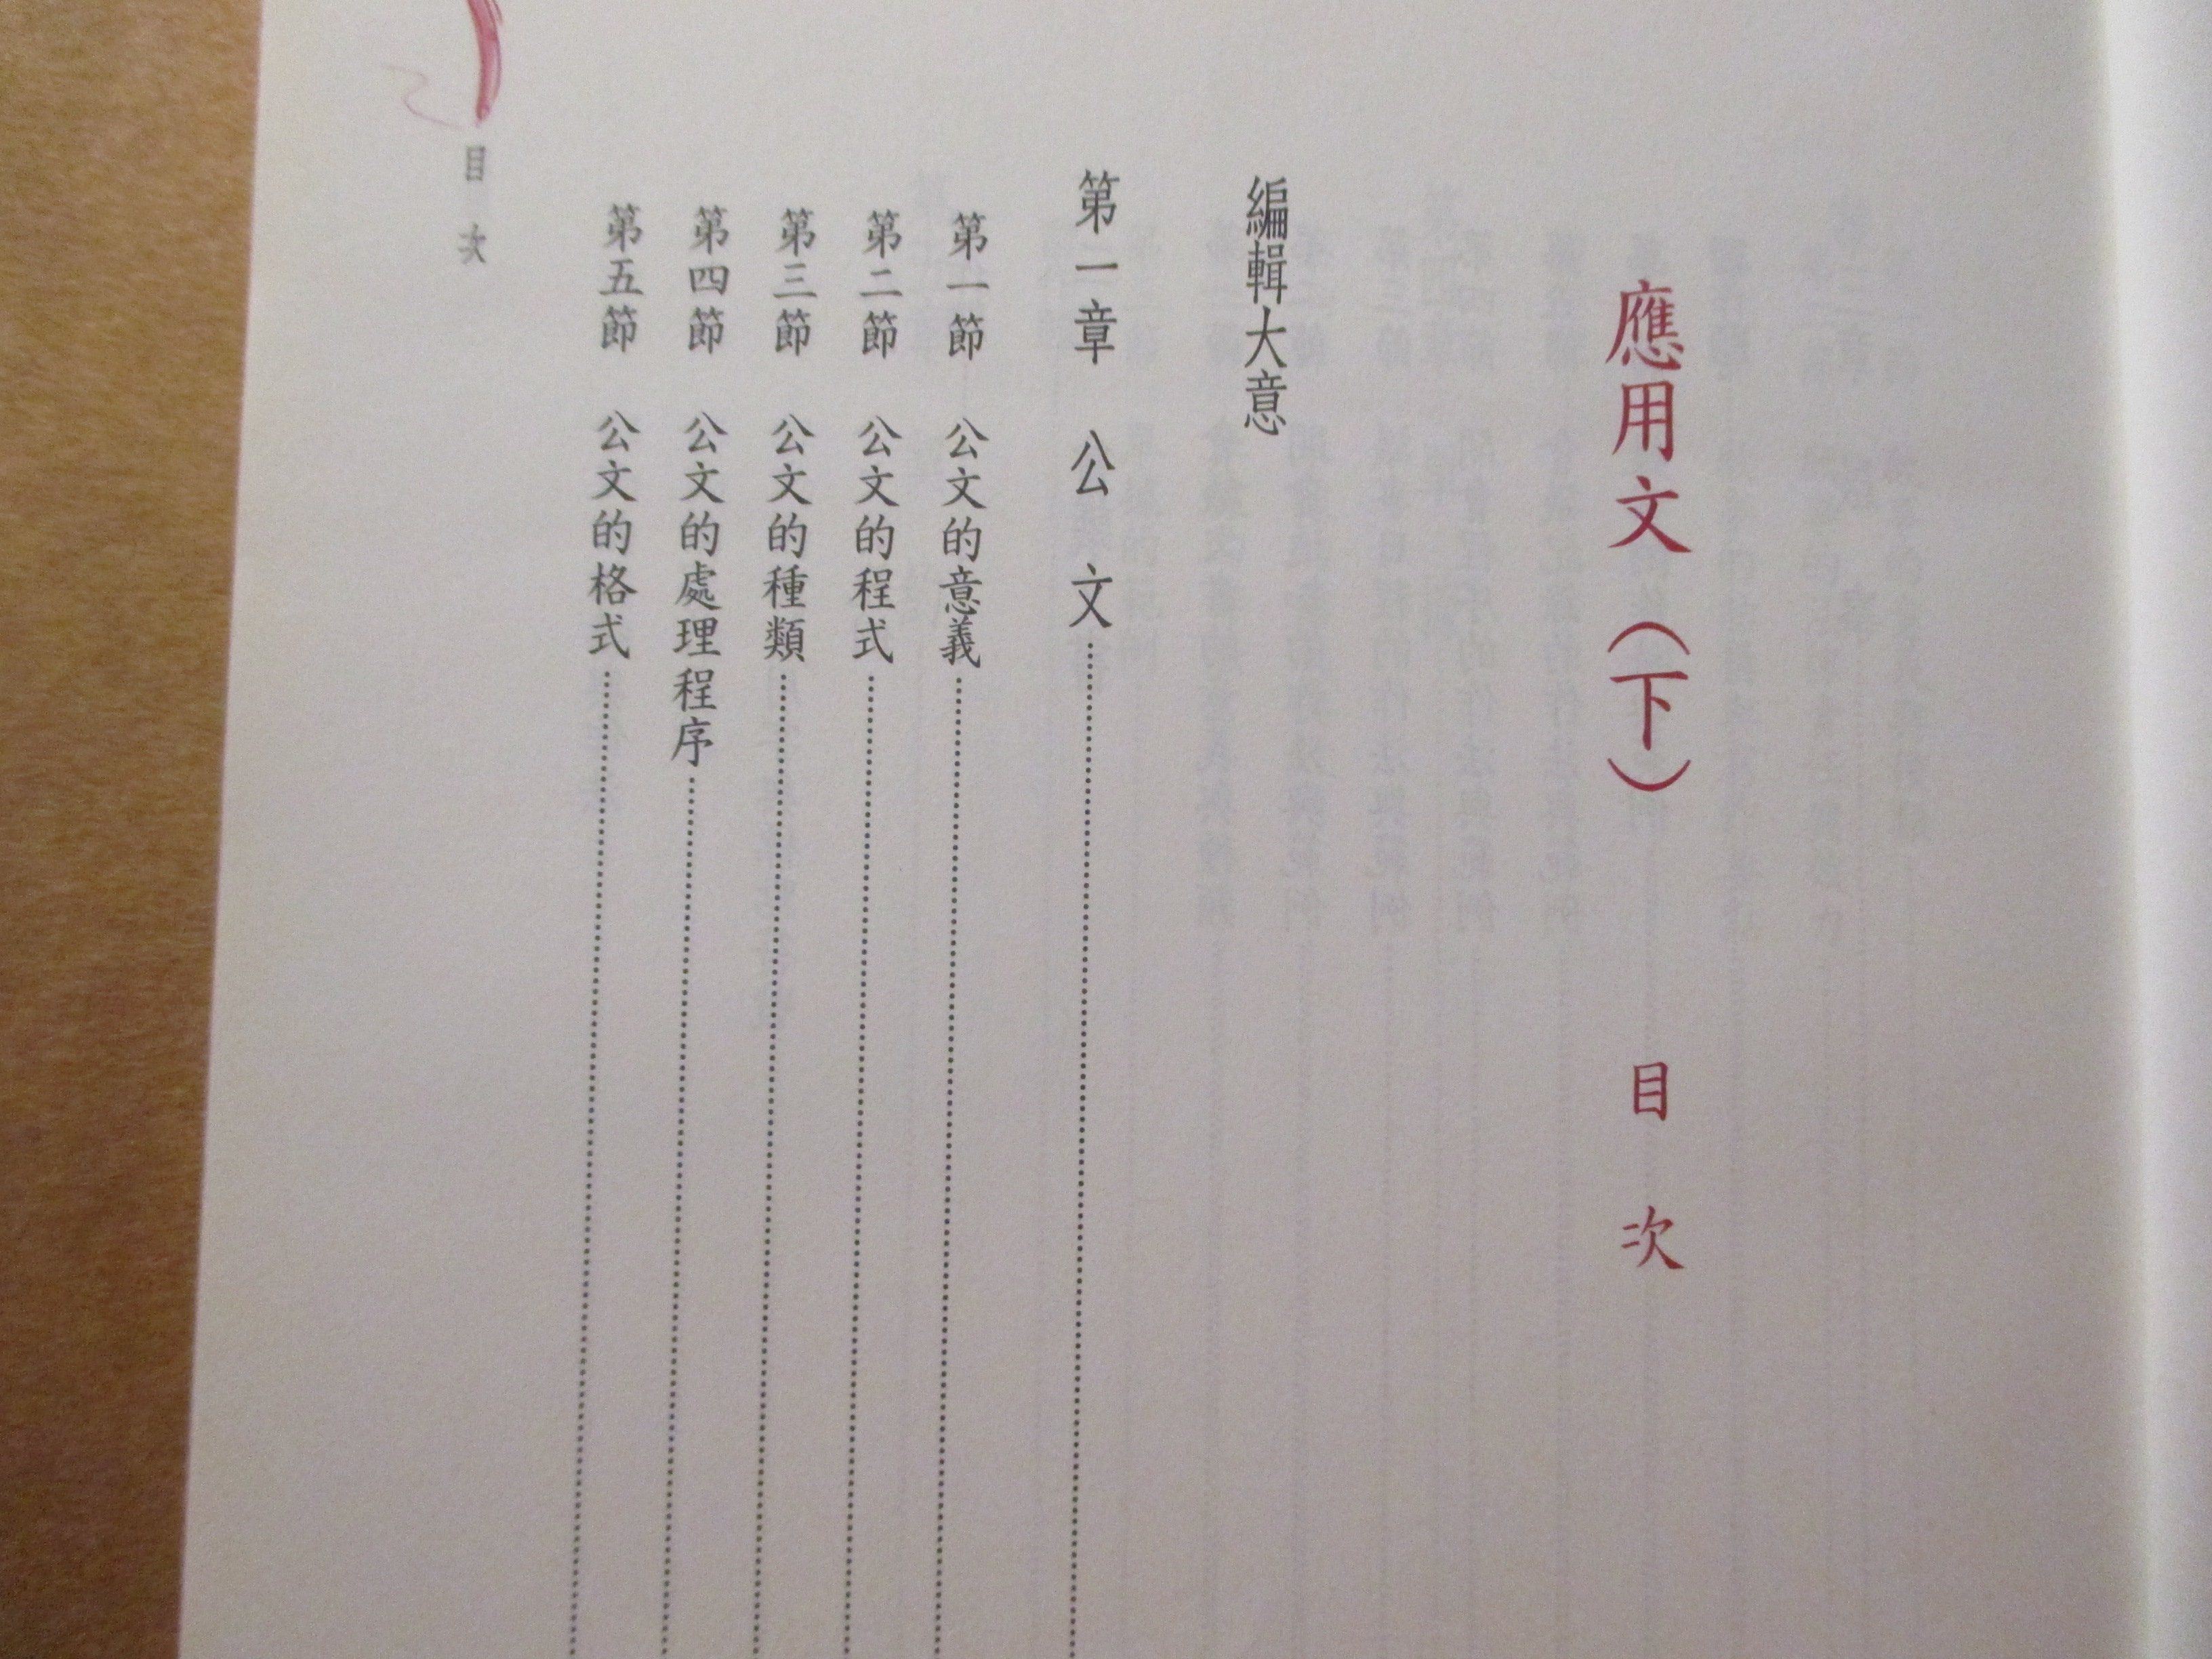 應用文（下） 目次
編輯大意
第一章 公文
第一節 公文的意義
第二節 公文的程式
第三節 公文的種類
第四節 公文的處理程序
第五節 公文的格式
目次